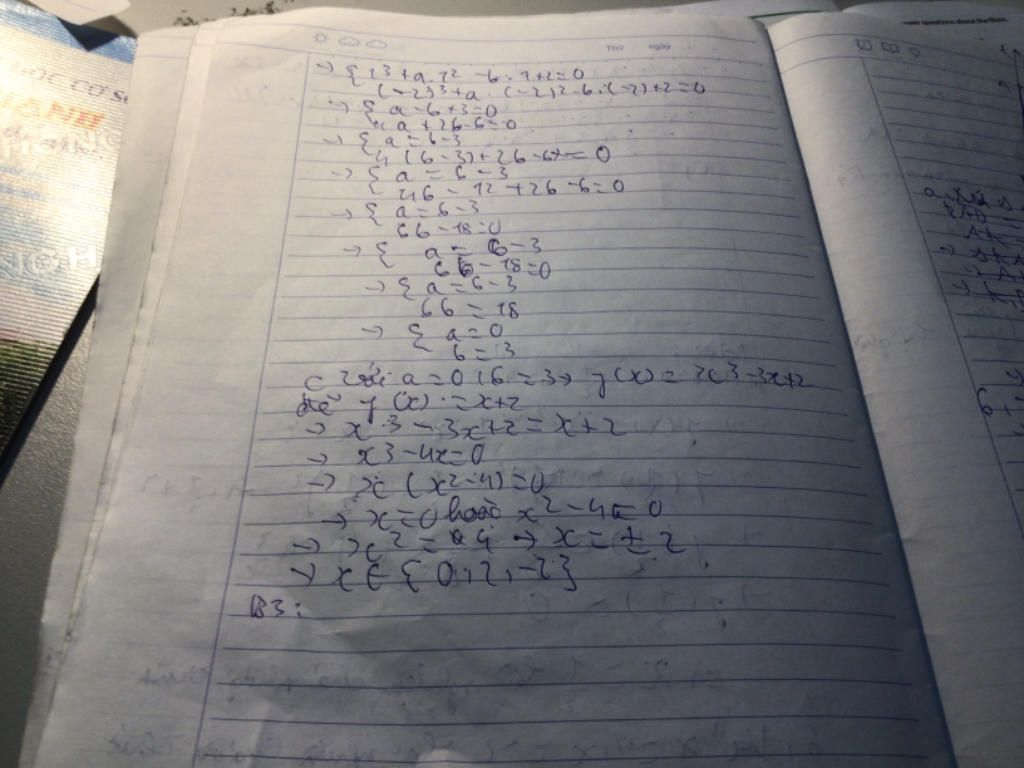 Thứ ngày
→ { 1³ + a.1² - b.1+2=0
(-2)³+a.(-2)²-b.(-2)+2=0
→ { a-b+3=0
4a+2b-6=0
→ { a=b-3
4(b-3)+2b-6=0
→ { a=b-3
4b-12+2b-6=0
→ { a=b-3
6b-18=0
→ { a=b-3
6b-18=0
→ { a=b-3
6b=18
→ { a=0
b=3
c với a=0; b=3 → f(x)=x³-3x+2
để f(x)=x+2
→ x³-3x+2=x+2
→ x³-4x=0
→ x(x²-4)=0
→ x=0 hoặc x²-4=0
→ x²=4 → x=±2
→ x∈{0;2;-2}
B3:
HỌC CƠ SỞ